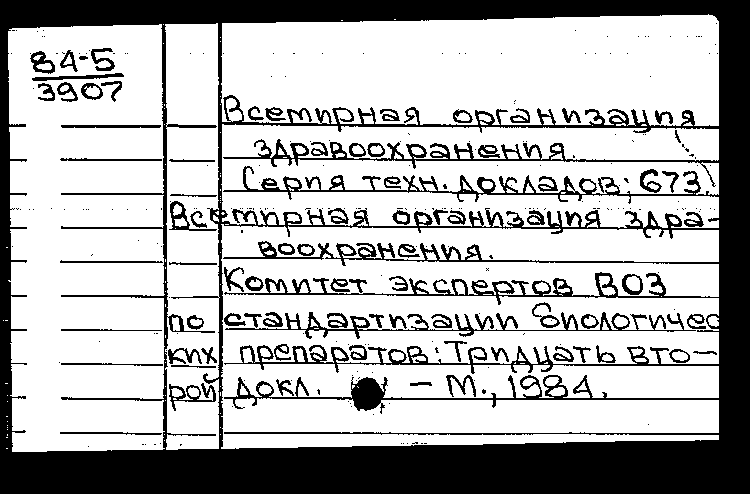 84-5
3907
Всемирная организация
здравоохранения.
Серия техн. докладов; 673.
Всемирная организация здра-
воохранения.
Комитет экспертов ВОЗ
по стандартизации биологичес
ких препаратов: Тридцать вто-
рой докл. – М., 1984.